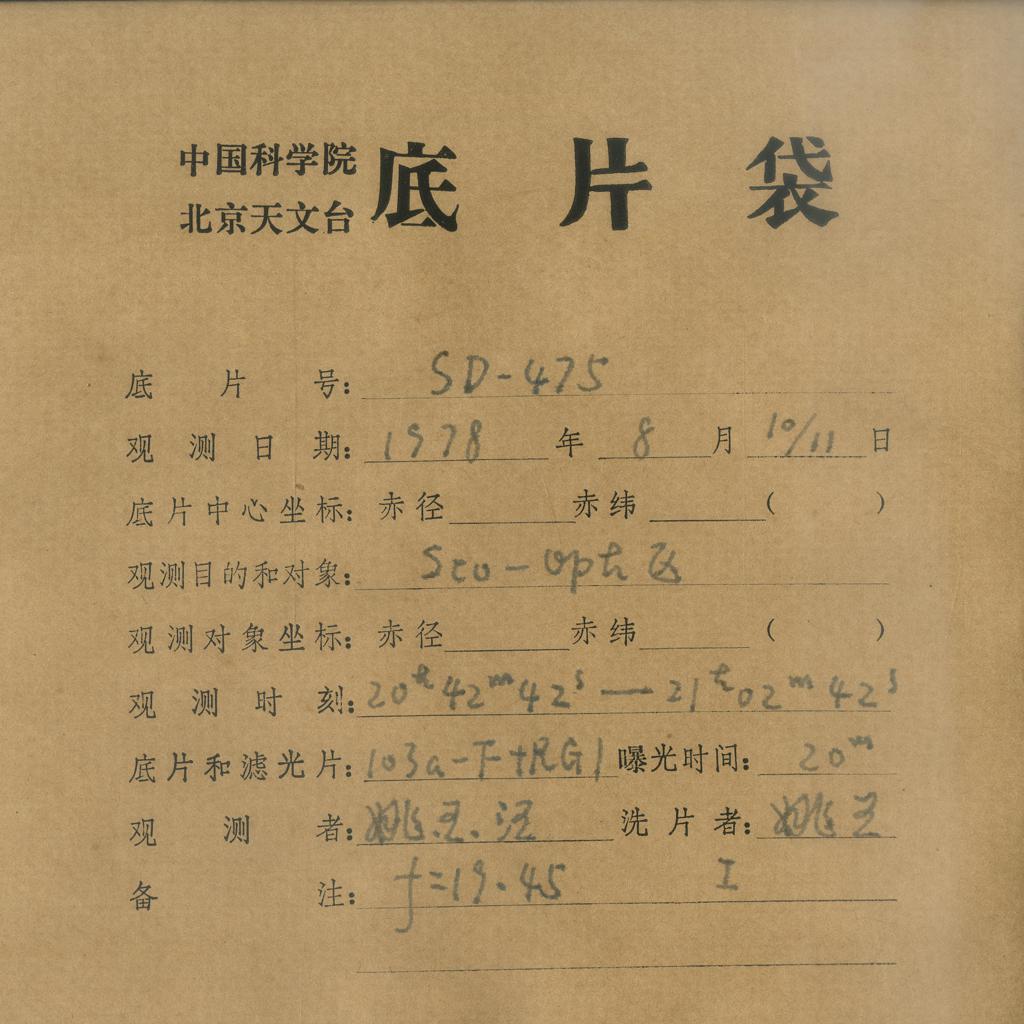 中国科学院
北京天文台
底片袋
底片号: SD-475
观测日期: 1978年8月10/11日
底片中心坐标: 赤径 赤纬 ( )
观测目的和对象: Sco-Oph 区
观测对象坐标: 赤径 赤纬 ( )
观测时刻: 20h42m42s — 21h02m42s
底片和滤光片: 103a-F+RG1 曝光时间: 20m
观测者: 姚 洗片者: 姚
备注: f=19.45 I